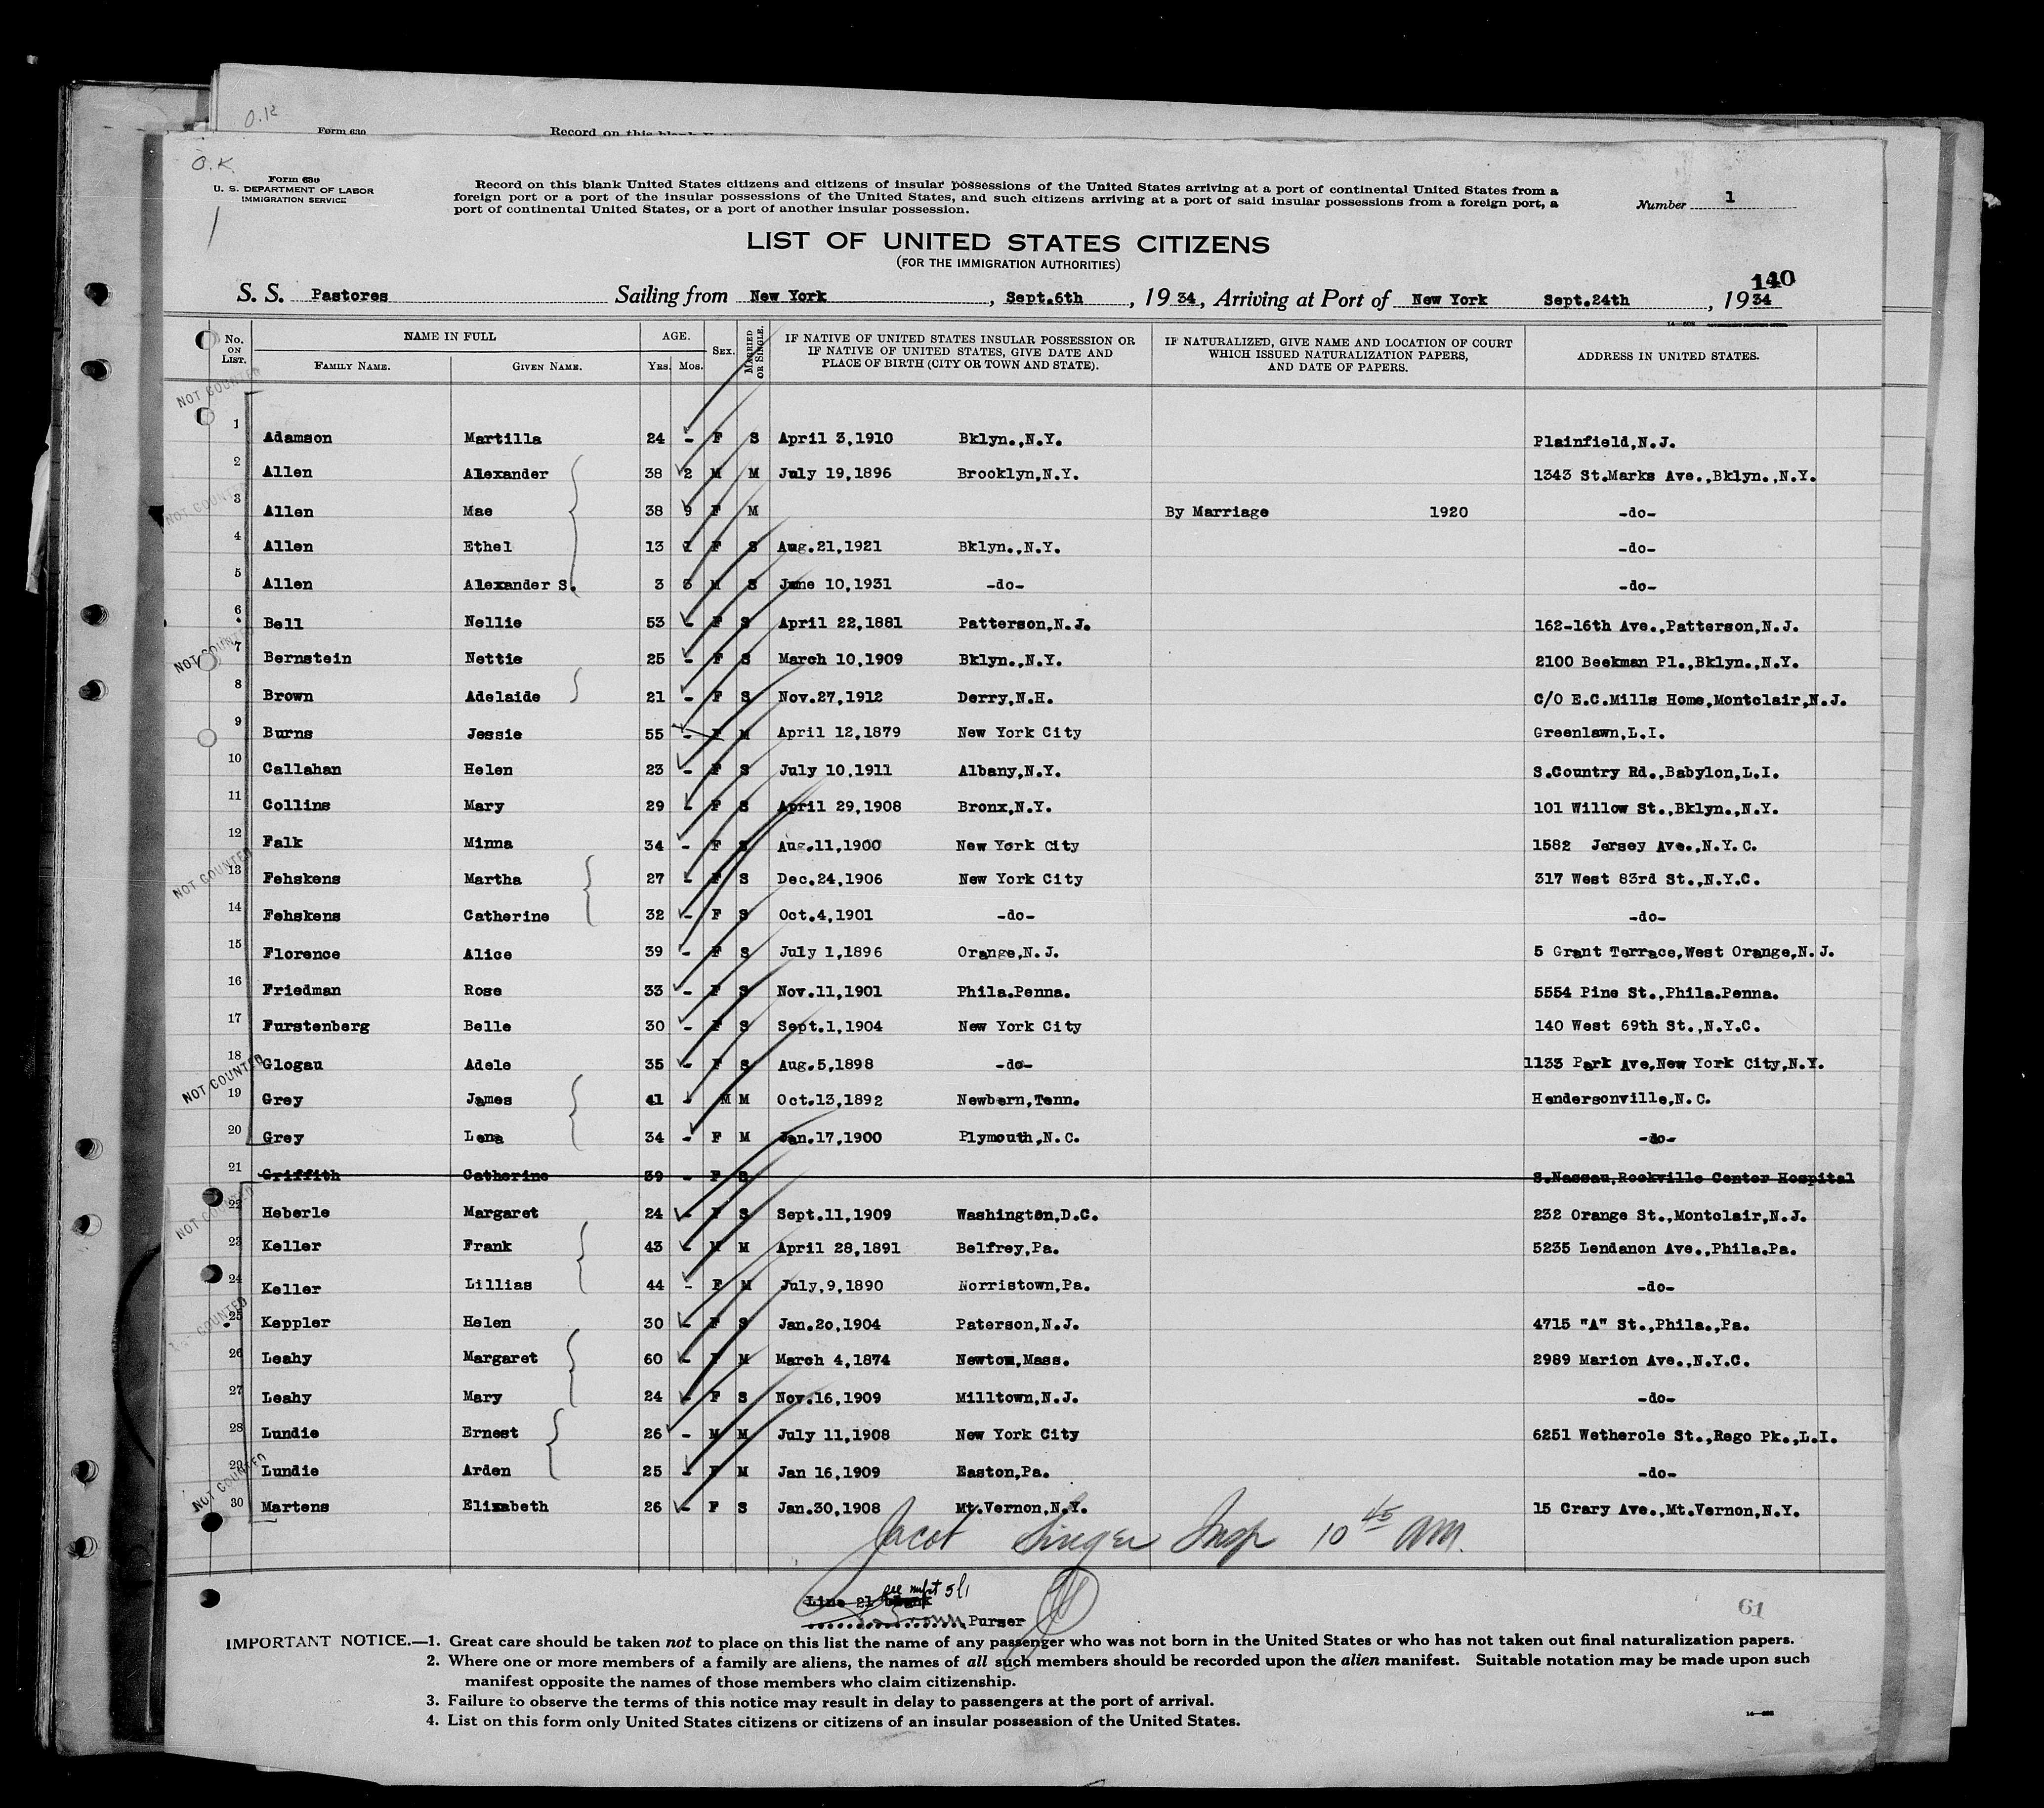 O.K
Form 630
Record on this blank
O.K
Form 630
U. S. DEPARTMENT OF LABOR
IMMIGRATION SERVICE
Record on this blank United States citizens and citizens of insular possessions of the United States arriving at a port of continental United States from a
foreign port or a port of the insular possessions of the United States, and such citizens arriving at a port of said insular possessions from a foreign port, a
port of continental United States, or a port of another insular possession.
Number 1
LIST OF UNITED STATES CITIZENS
(FOR THE IMMIGRATION AUTHORITIES)
140
S. S. Pastores Sailing from New York, Sept.6th, 1934, Arriving at Port of New York Sept.24th, 1934
No. ON LIST. NAME IN FULL FAMILY NAME. GIVEN NAME. AGE. YRS. MOS. SEX. MARRIED OR SINGLE. IF NATIVE OF UNITED STATES INSULAR POSSESSION OR IF NATIVE OF UNITED STATES, GIVE DATE AND PLACE OF BIRTH (CITY OR TOWN AND STATE). IF NATURALIZED, GIVE NAME AND LOCATION OF COURT WHICH ISSUED NATURALIZATION PAPERS, AND DATE OF PAPERS. ADDRESS IN UNITED STATES.
NOT COUNTED
1 Adamson Martilla 24 - F S April 3,1910 Bklyn.,N.Y. Plainfield,N.J.
2 Allen Alexander 38 2 M M July 19,1896 Brooklyn,N.Y. 1343 St.Marks Ave.,Bklyn.,N.Y.
NOT COUNTED
3 Allen Mae 38 9 F M By Marriage 1920 -do-
4 Allen Ethel 13 1 F S Aug.21,1921 Bklyn.,N.Y. -do-
5 Allen Alexander S. 3 3 M S June 10,1931 -do- -do-
6 Bell Nellie 53 - F S April 22,1881 Patterson,N.J. 162-16th Ave.,Patterson,N.J.
NOT COUNTED
7 Bernstein Nettie 25 - F S March 10,1909 Bklyn.,N.Y. 2100 Beekman Pl.,Bklyn.,N.Y.
8 Brown Adelaide 21 - F S Nov.27,1912 Derry,N.H. C/O E.C.Mills Home,Montclair,N.J.
9 Burns Jessie 55 - F M April 12,1879 New York City Greenlawn,L.I.
10 Callahan Helen 23 - F S July 10,1911 Albany,N.Y. S.Country Rd.,Babylon,L.I.
11 Collins Mary 29 - F S April 29,1908 Bronx,N.Y. 101 Willow St.,Bklyn.,N.Y.
12 Falk Minna 34 - F S Aug.11,1900 New York City 1582 Jersey Ave.,N.Y.C.
NOT COUNTED
13 Fehskens Martha 27 - F S Dec.24,1906 New York City 317 West 83rd St.,N.Y.C.
14 Fehskens Catherine 32 - F S Oct.4,1901 -do- -do-
15 Florence Alice 39 - F S July 1,1896 Orange,N.J. 5 Grant Terrace,West Orange,N.J.
16 Friedman Rose 33 - F S Nov.11,1901 Phila.Penna. 5554 Pine St.,Phila.Penna.
17 Furstenberg Belle 30 - F S Sept.1,1904 New York City 140 West 69th St.,N.Y.C.
18 Glogau Adele 35 - F S Aug.5,1898 -do- 1133 Park Ave,New York City,N.Y.
NOT COUNTED
19 Grey James 41 - M M Oct.13,1892 Newbern,Tenn. Hendersonville,N.C.
20 Grey Lena 34 - F M Jan.17,1900 Plymouth,N.C. -do-
21 Griffith Catherine 39 - F S S.Nassau,Rockville Center Hospital
NOT COUNTED
22 Heberle Margaret 24 - F S Sept.11,1909 Washington,D.C. 232 Orange St.,Montclair,N.J.
23 Keller Frank 43 - M M April 28,1891 Belfrey,Pa. 5235 Lendanon Ave.,Phila.Pa.
24 Keller Lillias 44 - F M July,9,1890 Norristown,Pa. -do-
COUNTED
25 Keppler Helen 30 - F S Jan.20,1904 Paterson,N.J. 4715 "A" St.,Phila.,Pa.
26 Leahy Margaret 60 - F M March 4,1874 Newton,Mass. 2989 Marion Ave.,N.Y.C.
27 Leahy Mary 24 - F S Nov.16,1909 Milltown,N.J. -do-
28 Lundie Ernest 26 - M M July 11,1908 New York City 6251 Wetherole St.,Rego Pk.,L.I.
29 Lundie Arden 25 - F M Jan 16,1909 Easton,Pa. -do-
NOT COUNTED
30 Martens Elizabeth 26 - F S Jan.30,1908 Mt.Vernon,N.Y. 15 Crary Ave.,Mt.Vernon,N.Y.
Jacob Singer Insp 10 45 AM.
Line 21 blank
Purser
61
IMPORTANT NOTICE.—1. Great care should be taken not to place on this list the name of any passenger who was not born in the United States or who has not taken out final naturalization papers.
2. Where one or more members of a family are aliens, the names of all such members should be recorded upon the alien manifest. Suitable notation may be made upon such
manifest opposite the names of those members who claim citizenship.
3. Failure to observe the terms of this notice may result in delay to passengers at the port of arrival.
4. List on this form only United States citizens or citizens of an insular possession of the United States.